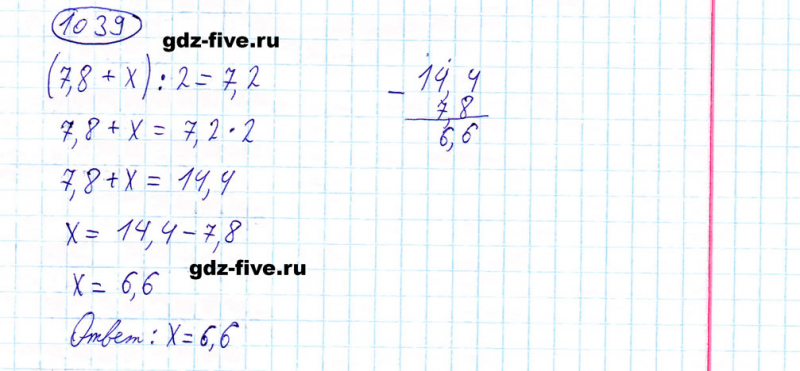 1039
gdz-five.ru
(7,8 + x) : 2 = 7,2
7,8 + x = 7,2 · 2
7,8 + x = 14,4
x = 14,4 - 7,8
gdz-five.ru
x = 6,6
Ответ: x = 6,6
- 14,4
7,8
6,6